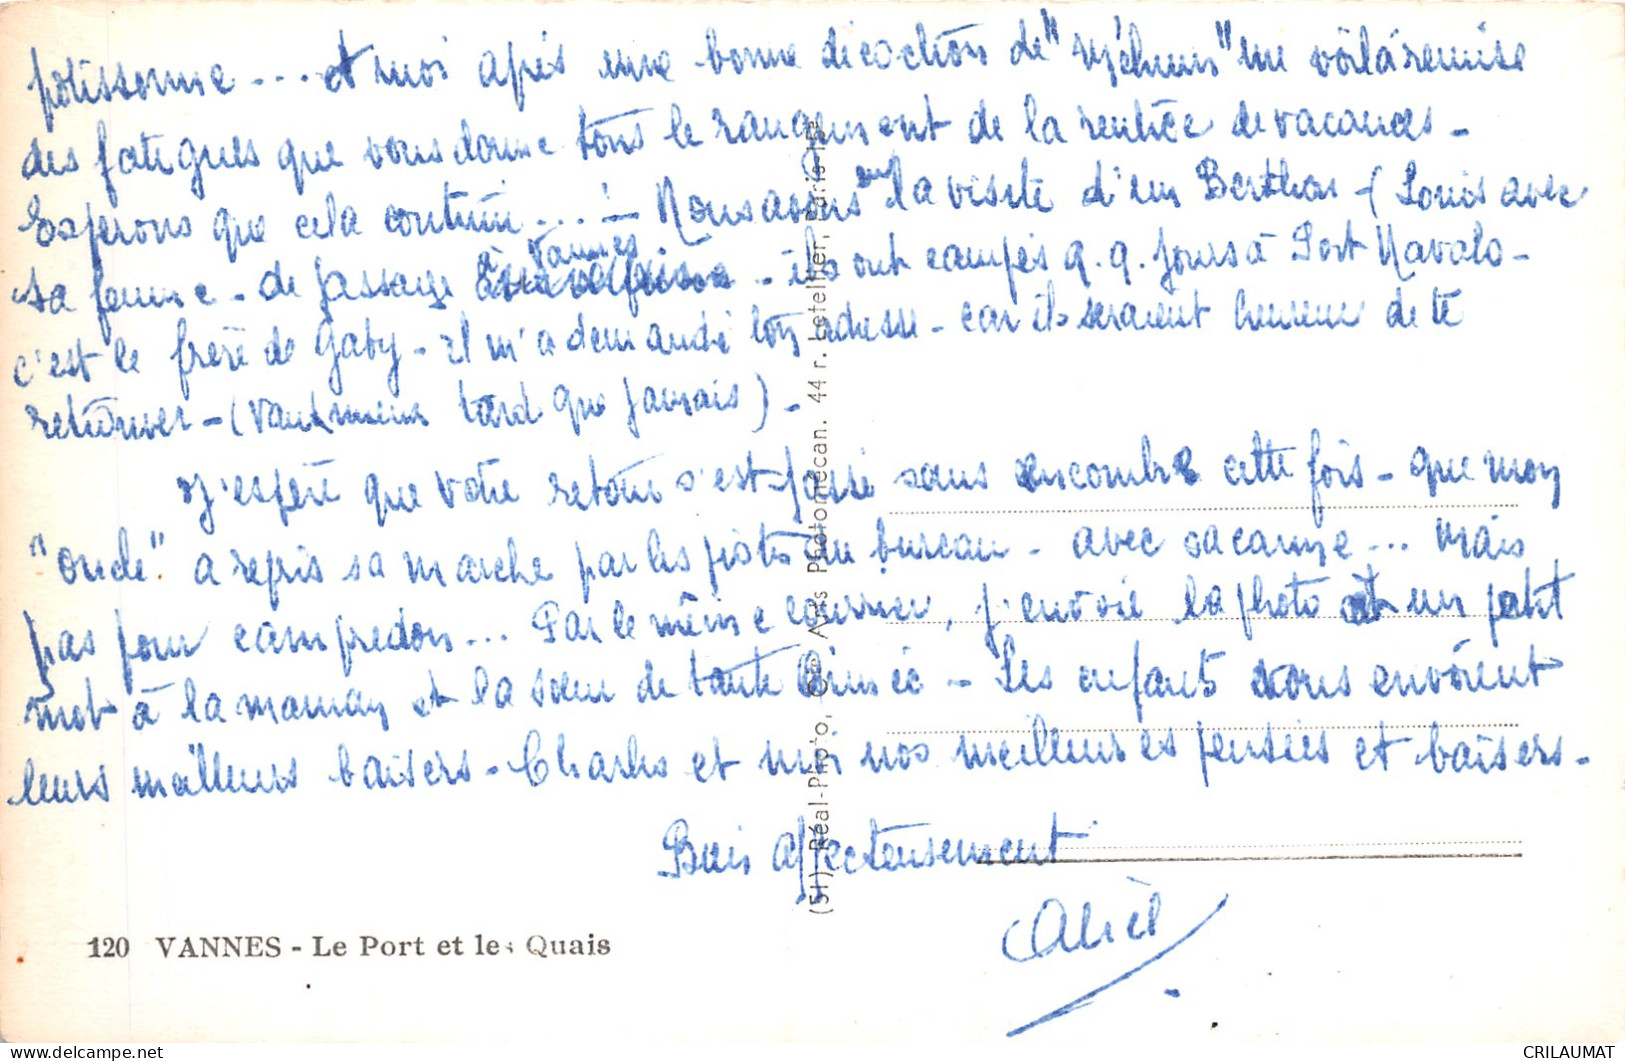 polissonne ... et moi après une bonne décoction de " " me voilà remise
des fatigues que vous donne tous le rangement de la rentrée de vacances -
Espérons que cela continue ... ! - Nous avons eu la visite d'un Berthas - (Louis avec
sa femme - de passage à Vannes - ils ont campés q.q. jours à Port Navalo -
c'est le frère de Gaby - il m'a demandé ton adresse - car ils seraient heureux de te
retrouver - (Vaut mieux tard que jamais) -
J'espère que votre retour s'est passé sans encombre cette fois - que mon
"oncle" a repris sa marche par les pistes du bureau - avec ... Mais
pas pour campredon ... Par le même courrier, j'envoie la photo et un petit
mot à la maman et la sœur de tante - Les enfants vous envoient
leurs meilleurs baisers - Charles et moi nos meilleures pensées et baisers -
Bien affectueusement
120 VANNES - Le Port et les Quais
(51) Réal-Photo, Cie des Arts Photomécan. 44 r. Letellier, Paris-15e
CRILAUMAT